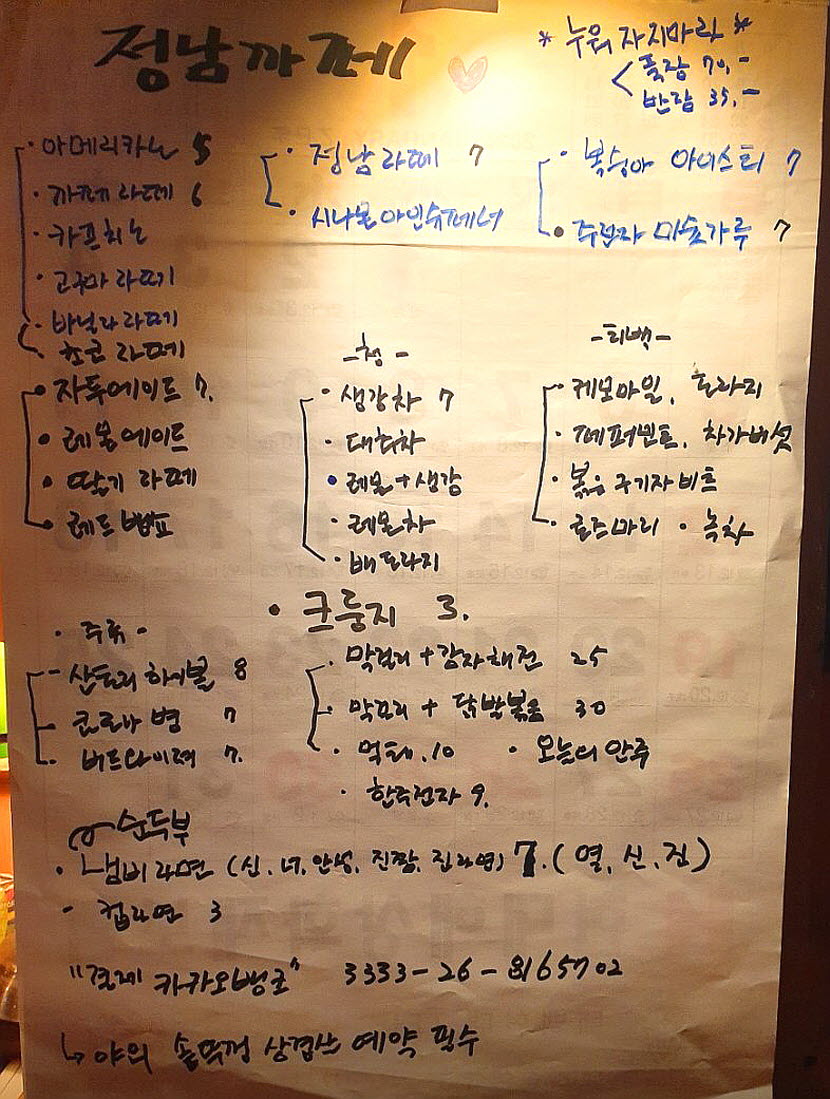 정남까페
* 누워 자지마라 *
폭장 70.-
반람 35.-
· 아메리카노 5
· 까페라떼 6
· 카프치노
· 고구마 라떼
· 바닐라 라떼
초코 라떼
· 정남 라떼 7
· 시나몬 아인슈페너
· 복숭아 아이스티 7
· 주문자 미숫가루 7
• 자두에이드 7.
• 레몬에이드
• 딸기 라떼
• 레드 뱅쇼
- 청 -
· 생강차 7
· 대추차
• 레몬+생강
· 레몬차
· 배도라지
- 티백 -
· 케모마일, 도라지
· 페퍼민트, 차가버섯
· 볶음 구기자 비트
· 로즈마리 · 녹차
• 크룽지 3.
· 주류 -
- 산토리 하이볼 8
코로나 병 7
버드와이져 7.
막걸리 + 감자해전 25
막걸리 + 닭발볶음 30
· 먹태.10 · 오늘의 안주
· 한주전자 9.
순두부
· 냄비라면 (신.너.안성.진짬.진라면) 7.(열.신.진)
- 컵라면 3
"결제 카카오뱅크" 3333-26-8165702
↳ 야외 솥뚜껑 삼겹살 예약 필수